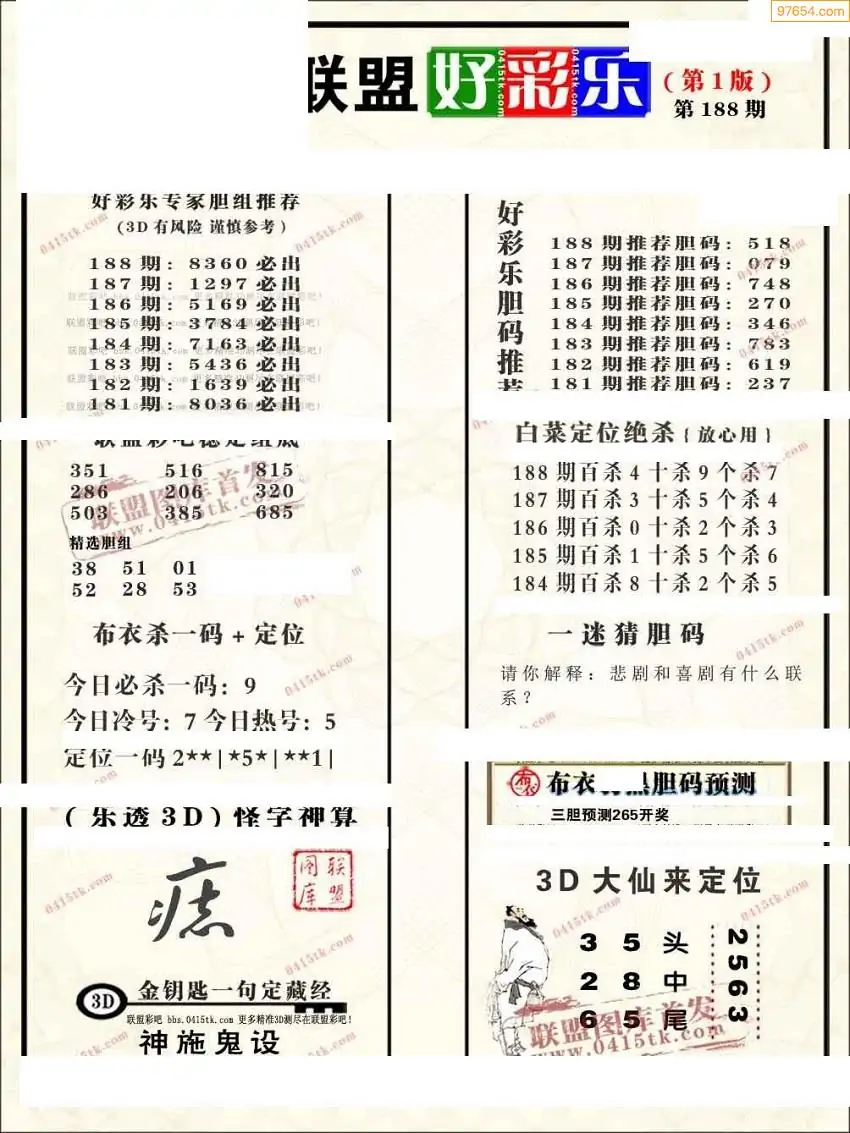 97654.com
联盟 好彩乐 (第1版)
第188期
好彩乐专家胆组推荐
(3D有风险 谨慎参考)
188期: 8360必出
187期: 1297必出
186期: 5169必出
185期: 3784必出
184期: 7163必出
183期: 5436必出
182期: 1639必出
181期: 8036必出
联盟彩吧稳定组底
351 516 815
286 206 320
503 385 685
精选胆组
38 51 01
52 28 53
布衣杀一码+定位
今日必杀一码: 9
今日冷号: 7 今日热号: 5
定位一码 2**|*5*|**1|
(乐透3D)怪字神算
痣
联盟图库
3D 金钥匙一句定藏经
联盟彩吧 bbs.0415tk.com 更多精准3D测尽在联盟彩吧!
神施鬼设
好彩乐胆码推荐
188期推荐胆码: 518
187期推荐胆码: 079
186期推荐胆码: 748
185期推荐胆码: 270
184期推荐胆码: 346
183期推荐胆码: 783
182期推荐胆码: 619
181期推荐胆码: 237
白菜定位绝杀{放心用}
188期百杀4十杀9个杀7
187期百杀3十杀5个杀4
186期百杀0十杀2个杀3
185期百杀1十杀5个杀6
184期百杀8十杀2个杀5
一迷猜胆码
请你解释: 悲剧和喜剧有什么联
系?
布衣 胆码预测
三胆预测265开奖
3D大仙来定位
3 5 头
2 8 中
6 5 尾
2563
联盟图库首发
www.0415tk.com